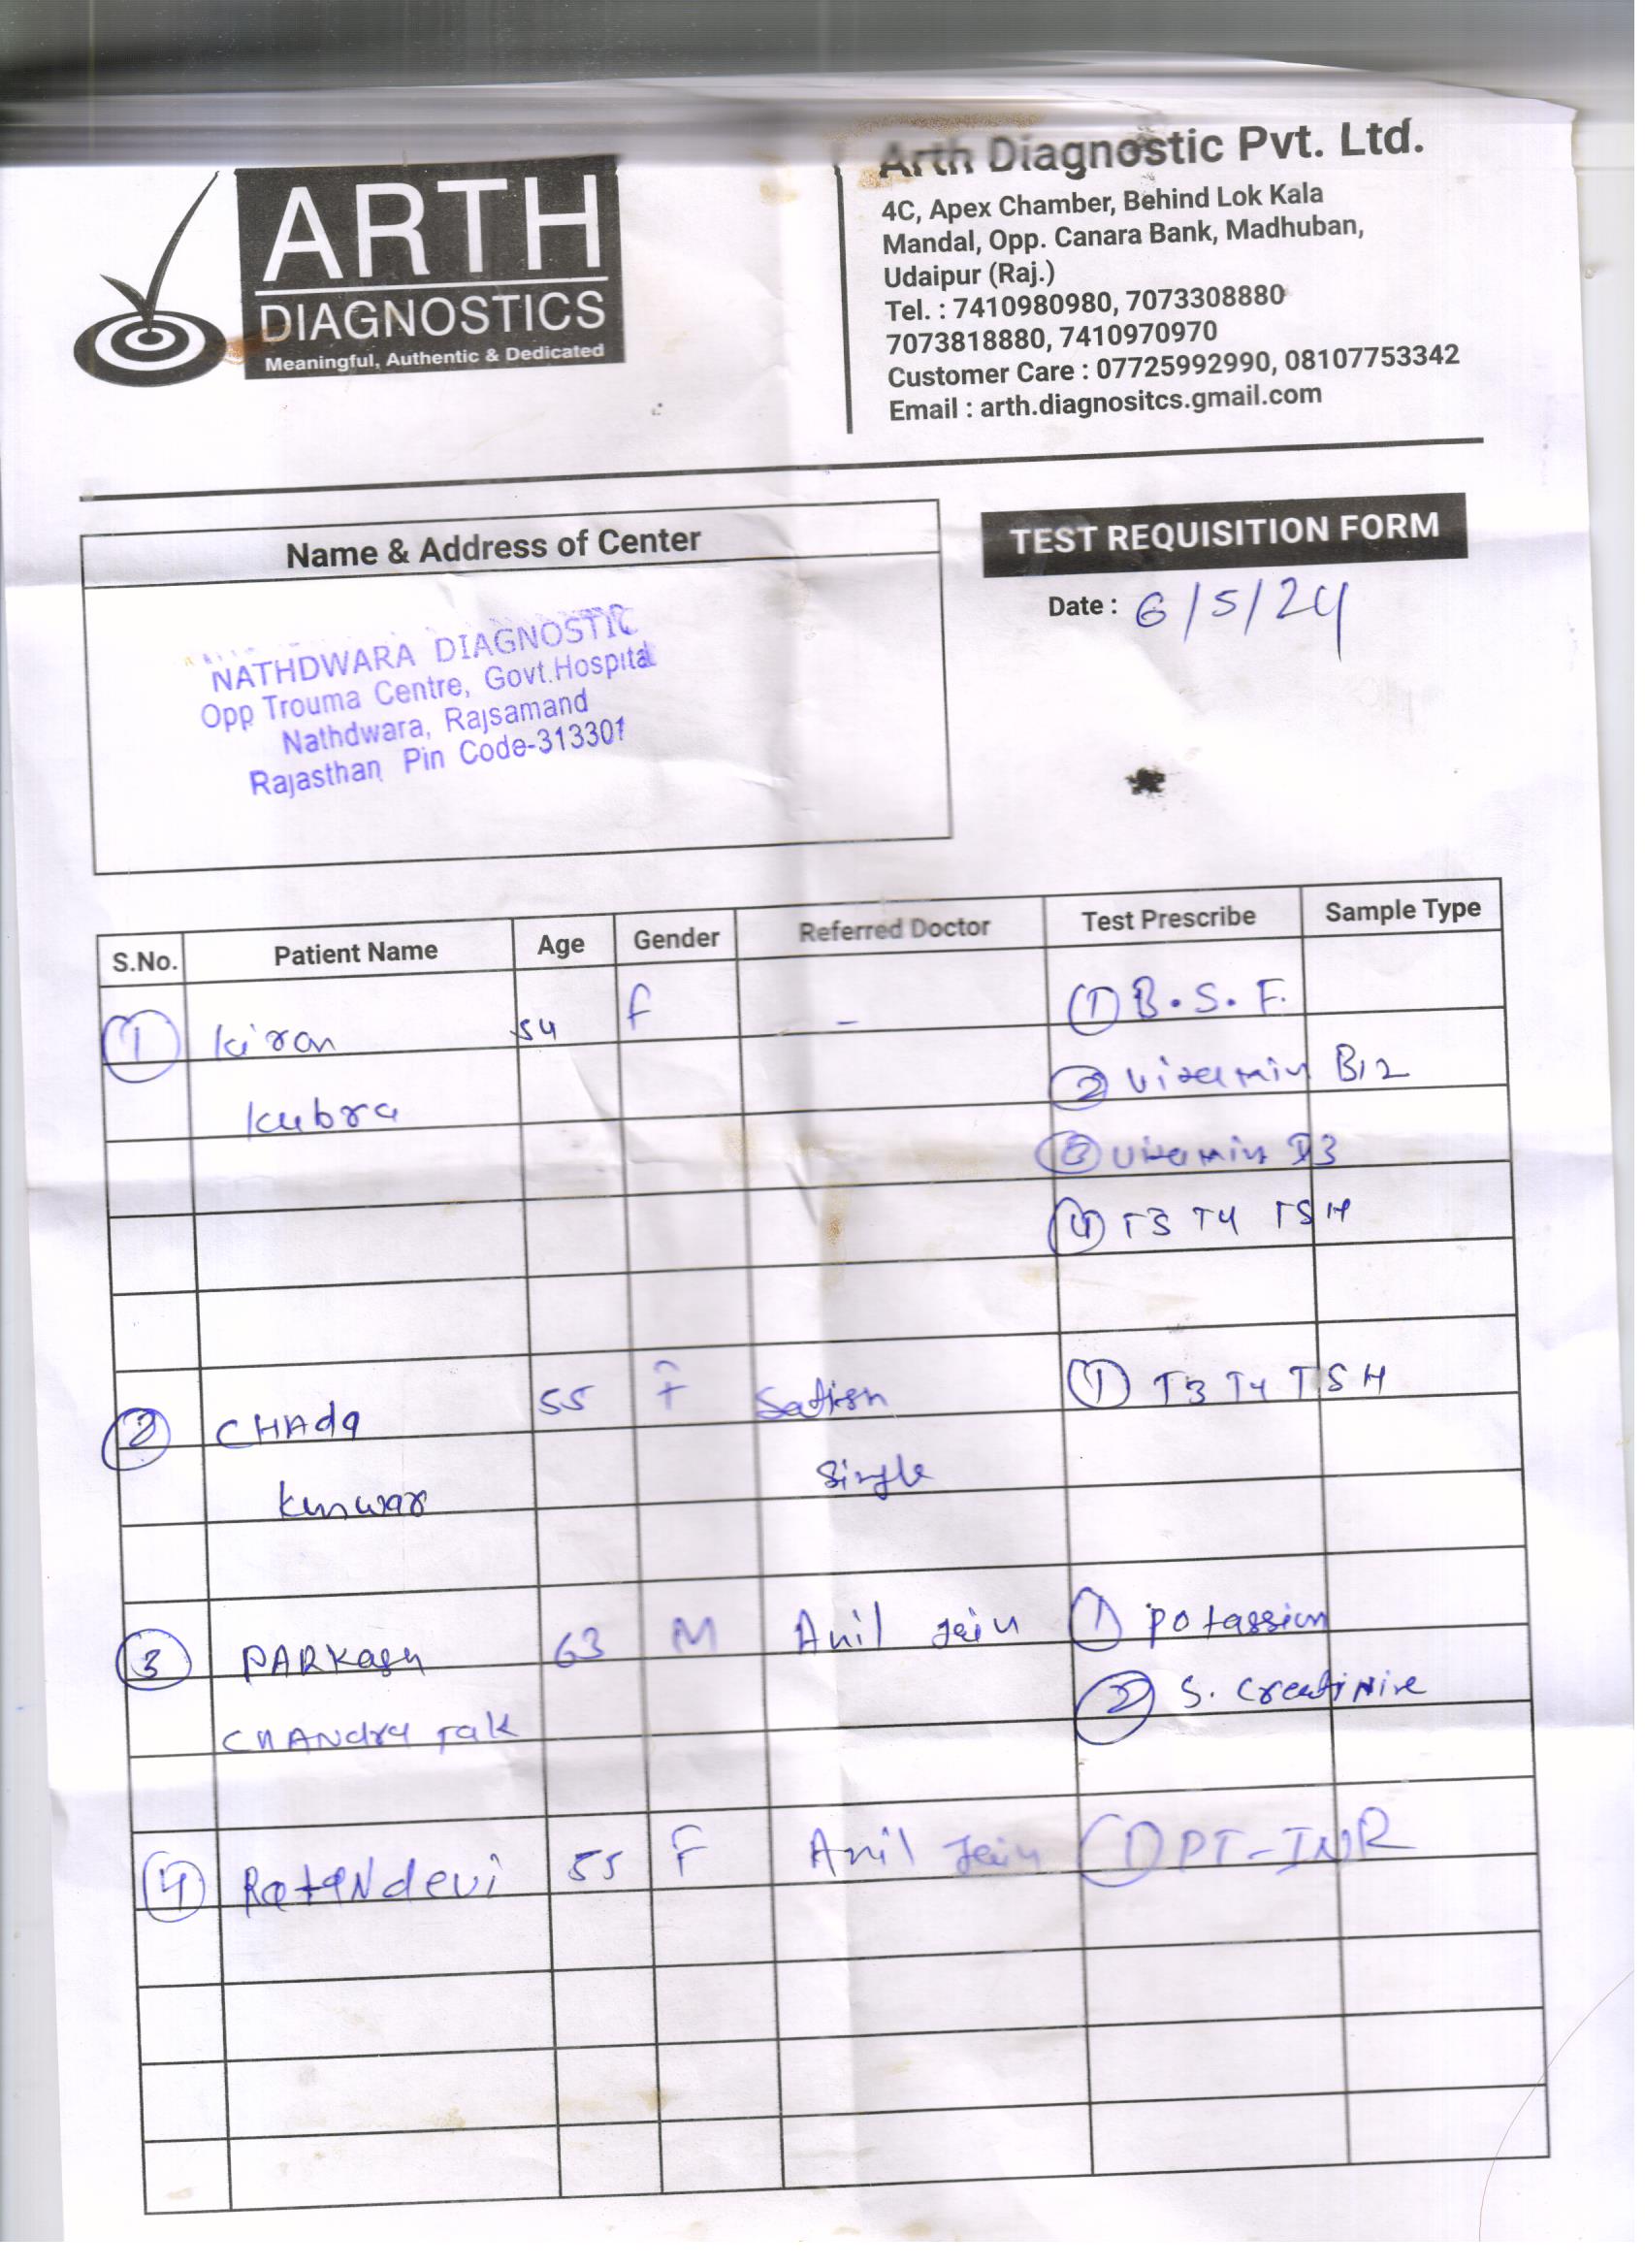 ARTH
DIAGNOSTICS
Meaningful, Authentic & Dedicated
Arth Diagnostic Pvt. Ltd.
4C, Apex Chamber, Behind Lok Kala
Mandal, Opp. Canara Bank, Madhuban,
Udaipur (Raj.)
Tel. : 7410980980, 7073308880
7073818880, 7410970970
Customer Care : 07725992990, 08107753342
Email : arth.diagnositcs.gmail.com
Name & Address of Center
NATHDWARA DIAGNOSTIC
Opp Trouma Centre, Govt.Hospital
Nathdwara, Rajsamand
Rajasthan Pin Code-313301
TEST REQUISITION FORM
Date : 6/5/24
S.No. Patient Name Age Gender Referred Doctor Test Prescribe Sample Type
1 kiran 54 f - 1 B.S.F.
kubra 2 Vitamin B12
3 Vitamin D3
4 T3 T4 TSH
2 CHAda 55 F Satish 1 T3 T4 TSH
kunwar Single
3 PARKash 63 M Anil Jain 1 Potassium
CHANdra Tak 2 S. Creatinine
4 RataNdevi 55 F Anil Jain 1 PT-INR